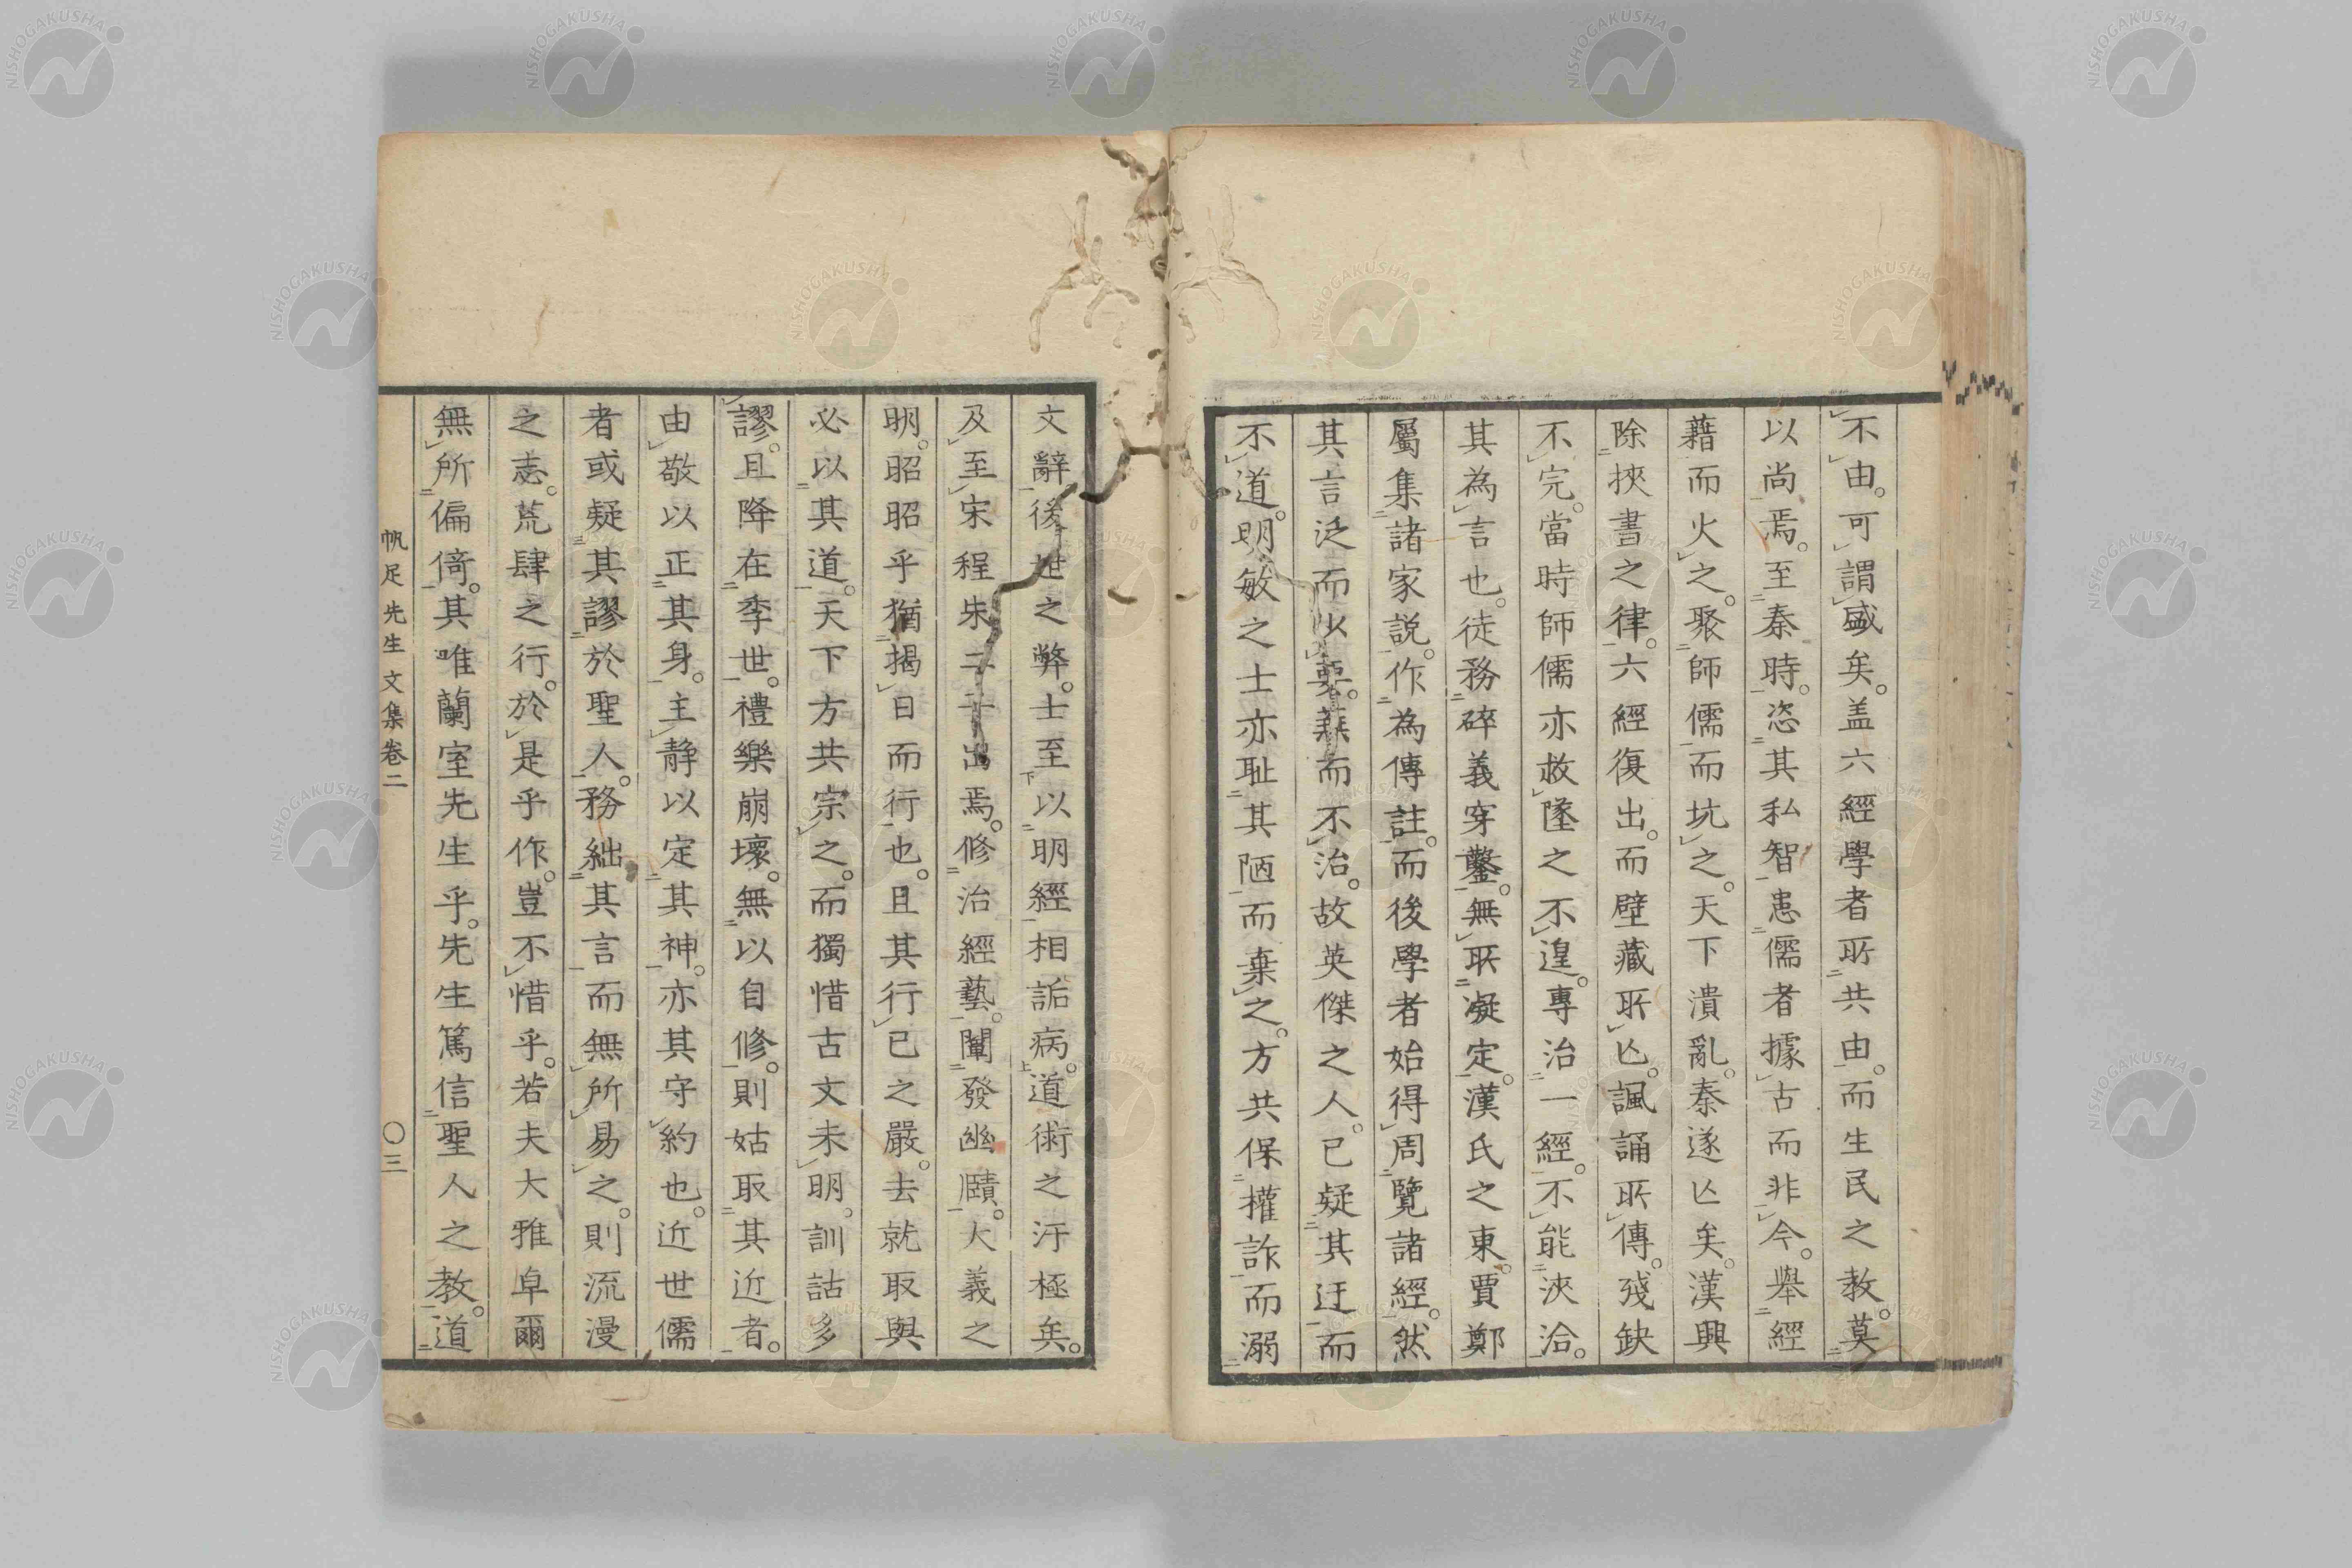 不由。可謂盛矣。盖六經學者所共由。而生民之教。莫
以尚焉。至秦時。恣其私智。患儒者據古而非今。舉經
藉而火之。聚師儒而坑之。天下潰亂。秦遂亾矣。漢興
除挾書之律。六經復出。而壁藏所亾。諷誦所傳。殘缺
不完。當時師儒亦救墜之不遑。專治一經。不能浹洽。
其為言也。徒務碎義穿鑿。無所凝定。漢氏之東。賈鄭
屬集諸家説。作為傳註。而後學者始得周覽諸經。然
其言泛而少要。蕪而不治。故英傑之人。已疑其迂而
不道。明敏之士亦耻其陋而棄之。方共保權詐而溺
文辭後世之弊。士至以明經相詬病。道術之汙極矣。
及至宋程朱二子出焉。修治經藝。闡發幽賾。大義之
明。昭昭乎猶揭日而行也。且其行已之嚴。去就取與
必以其道。天下方共宗之。而獨惜古文未明。訓詁多
謬。且降在季世。禮樂崩壞。無以自修。則姑取其近者。
由敬以正其身。主靜以定其神。亦其守約也。近世儒
者或疑其謬於聖人。務絀其言而無所易之。則流漫
之志。荒肆之行。於是乎作。豈不惜乎。若夫大雅卓爾
無所偏倚。其唯蘭室先生乎。先生篤信聖人之教。道
帆足先生文集卷二
〇三
NISHOGAKUSHA